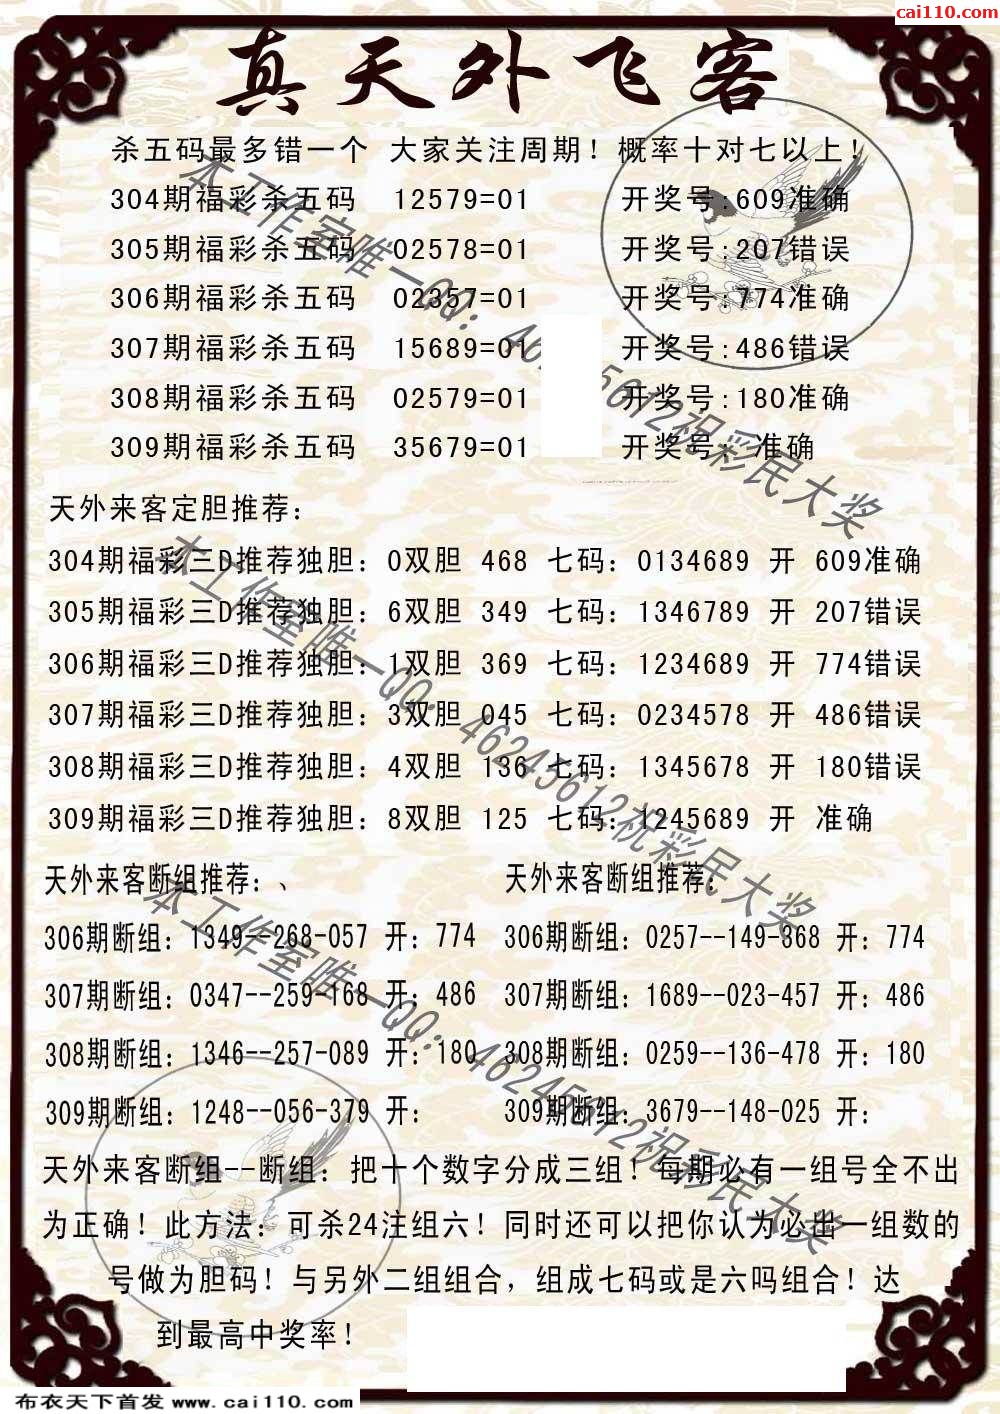 cai110.com
真天外飞客
杀五码最多错一个 大家关注周期！概率十对七以上！
304期福彩杀五码 12579=01 开奖号:609准确
305期福彩杀五码 02578=01 开奖号:207错误
306期福彩杀五码 02357=01 开奖号:774准确
307期福彩杀五码 15689=01 开奖号:486错误
308期福彩杀五码 02579=01 开奖号:180准确
309期福彩杀五码 35679=01 开奖号: 准确
天外来客定胆推荐：
304期福彩三D推荐独胆：0双胆 468 七码：0134689 开 609准确
305期福彩三D推荐独胆：6双胆 349 七码：1346789 开 207错误
306期福彩三D推荐独胆：1双胆 369 七码：1234689 开 774错误
307期福彩三D推荐独胆：3双胆 045 七码：0234578 开 486错误
308期福彩三D推荐独胆：4双胆 136 七码：1345678 开 180错误
309期福彩三D推荐独胆：8双胆 125 七码：1245689 开 准确
天外来客断组推荐：、
306期断组：1349--268-057 开：774
307期断组：0347--259-168 开：486
308期断组：1346--257-089 开：180
309期断组：1248--056-379 开：
天外来客断组推荐：
306期断组：0257--149-368 开：774
307期断组：1689--023-457 开：486
308期断组：0259--136-478 开：180
309期断组：3679--148-025 开：
天外来客断组--断组：把十个数字分成三组！每期必有一组号全不出
为正确！此方法：可杀24注组六！同时还可以把你认为必出一组数的
号做为胆码！与另外二组组合，组成七码或是六吗组合！达
到最高中奖率！
本工作室唯一QQ：46245612祝彩民大奖
本工作室唯一QQ：46245612祝彩民大奖
本工作室唯一QQ：46245612祝彩民大奖
布衣天下首发 www.cai110.com